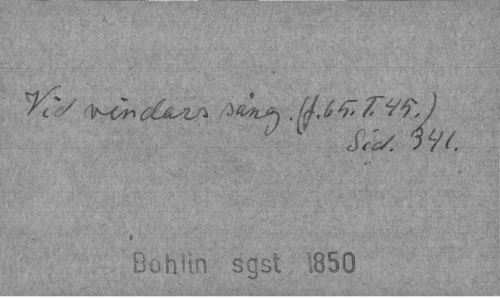 Vid vindars sång. (f. 65. T. 45.)
Sid. 341.
Bohlin sgst 1850